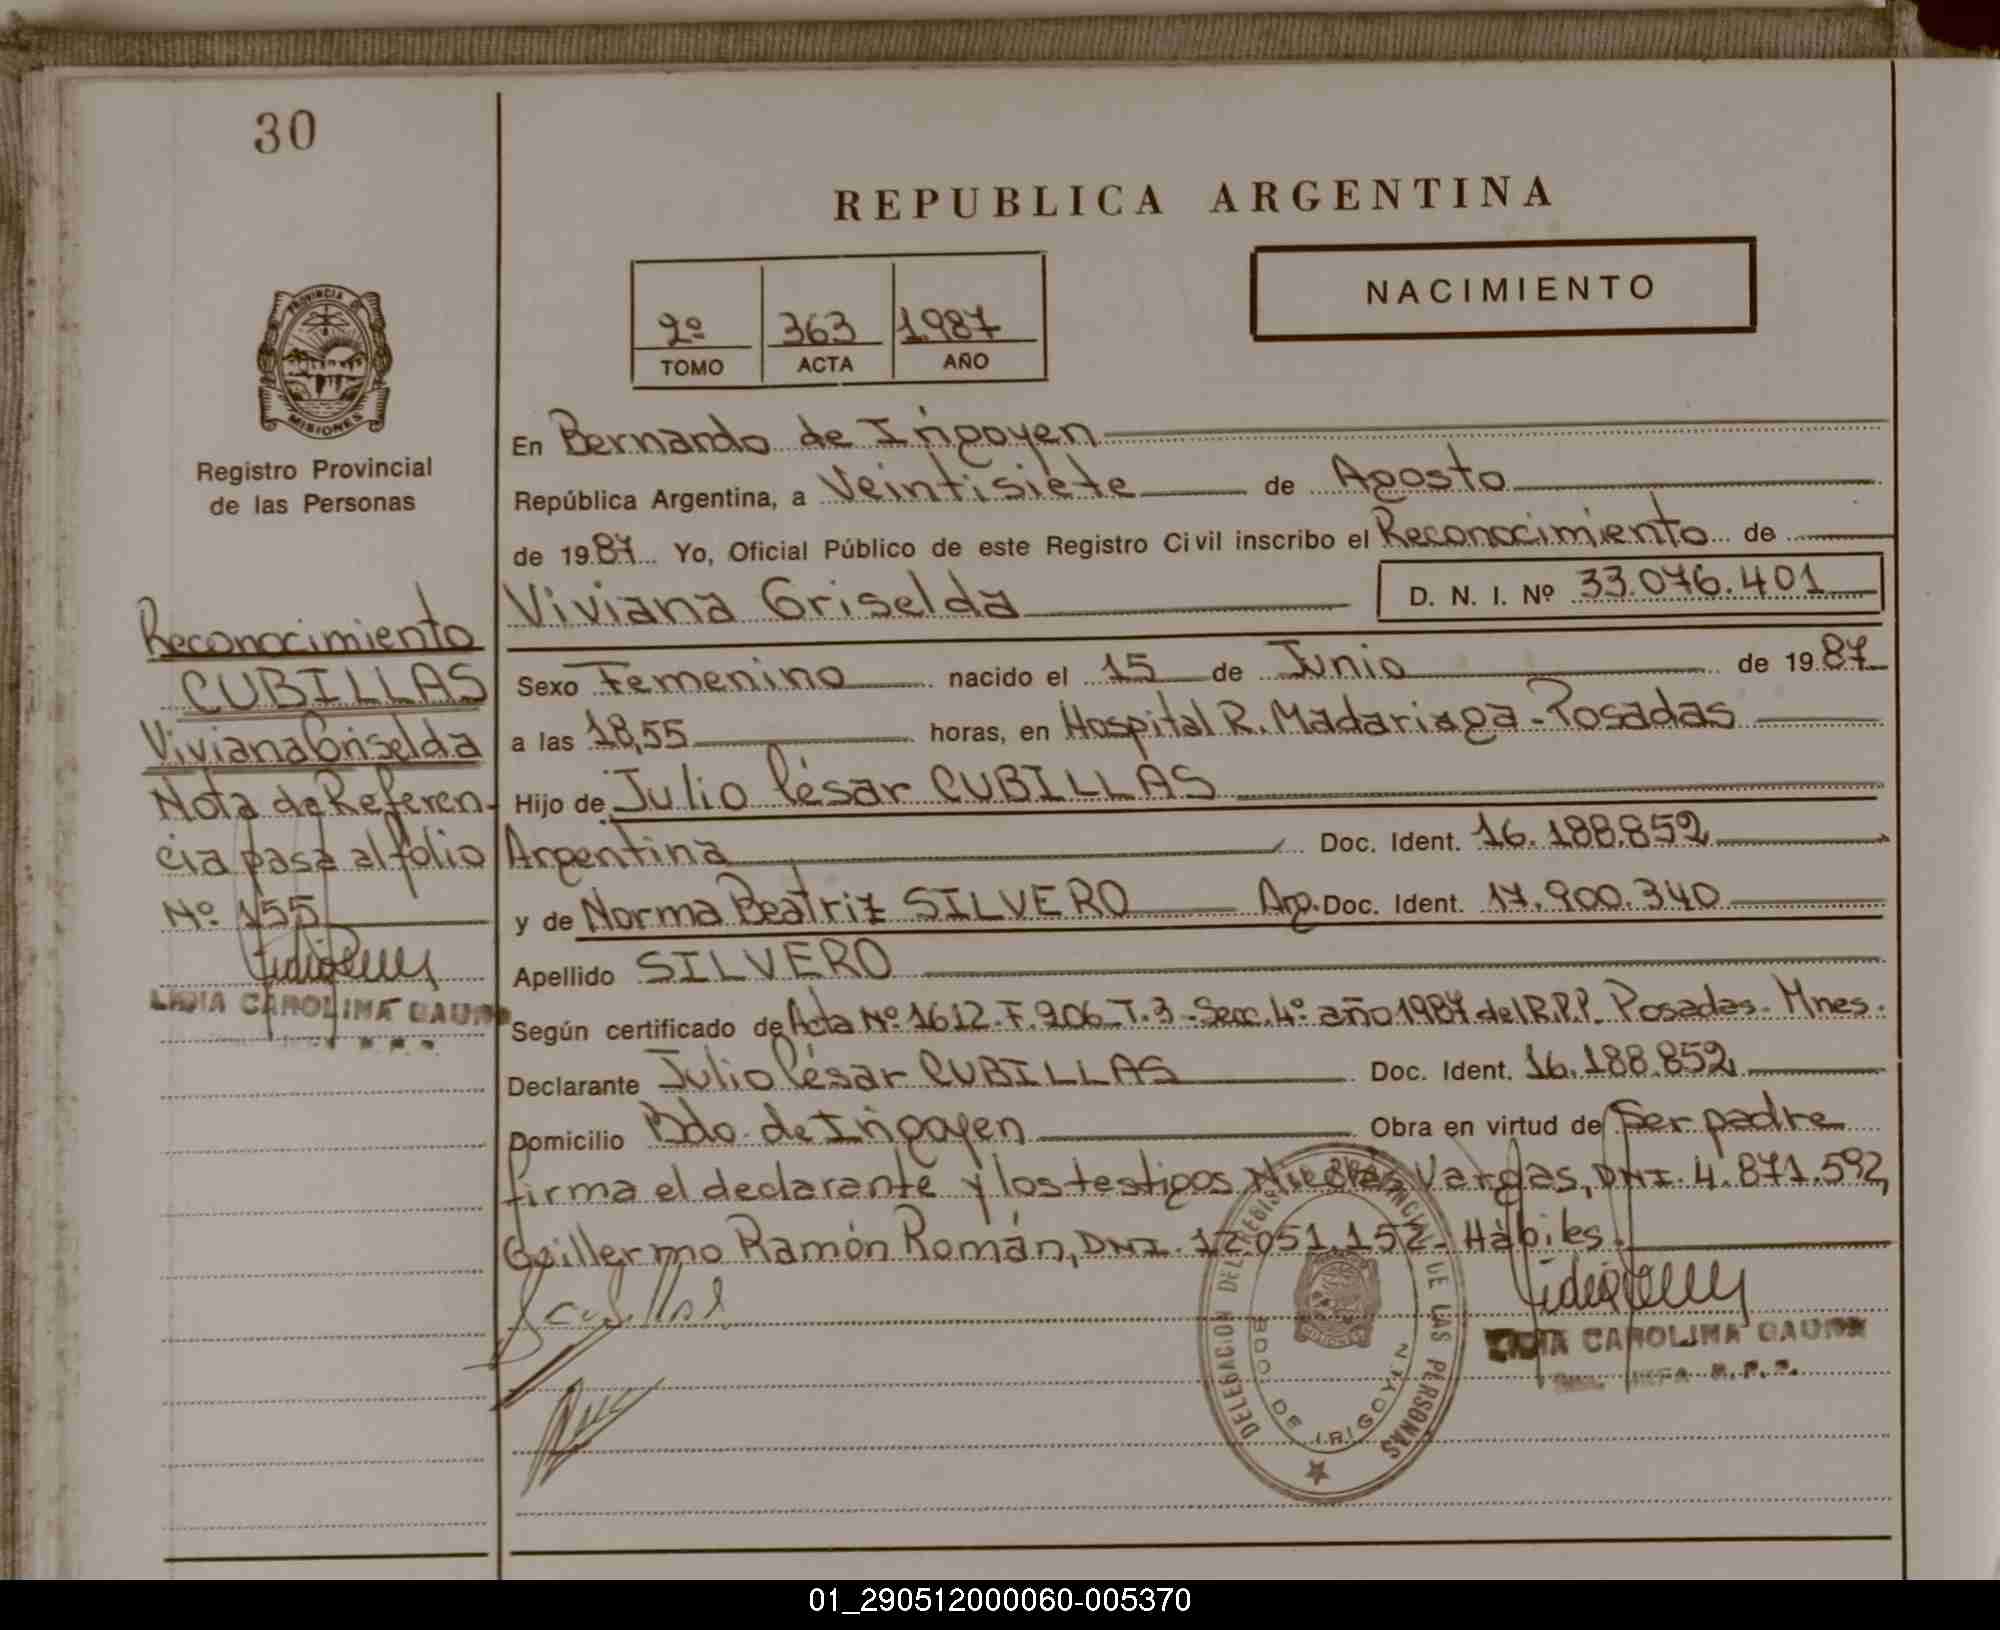 30
REPUBLICA ARGENTINA
NACIMIENTO
2º 363 1.987
TOMO ACTA AÑO
PROVINCIA DE
MISIONES
Registro Provincial
de las Personas
En Bernardo de Irigoyen
República Argentina, a Veintisiete de Agosto
de 1987 Yo, Oficial Público de este Registro Civil inscribo el Reconocimiento de
Viviana Griselda D. N. I. Nº 33.076.401
Sexo Femenino nacido el 15 de Junio de 1987
a las 18,55 horas, en Hospital R. Madariaga-Posadas
Hijo de Julio César CUBILLAS
Argentina Doc. Ident. 16.188.852
y de Norma Beatriz SILVERO Arg. Doc. Ident. 17.900.340
Apellido SILVERO
Según certificado de Acta Nº 1612-F.206-T.3-Secc.4º año 1987 del R.P.P. Posadas-Mnes.
Declarante Julio César CUBILLAS Doc. Ident. 16.188.852
Domicilio Bdo. de Irigoyen Obra en virtud de Ser padre
firma el declarante y los testigos Vargas, DNI. 4.871.592,
Guillermo Ramón Román, DNI. 12.051.152- Hàbiles.
Reconocimiento
CUBILLAS
Viviana Griselda
Nota de Referen-
cia pasa al folio
Nº 155
LIDIA CAROLINA
LIDIA CAROLINA
JEFA R.P.P.
DELEGACION DEL REGISTRO PROVINCIAL DE LAS PERSONAS
BDO DE IRIGOYEN
01_290512000060-005370